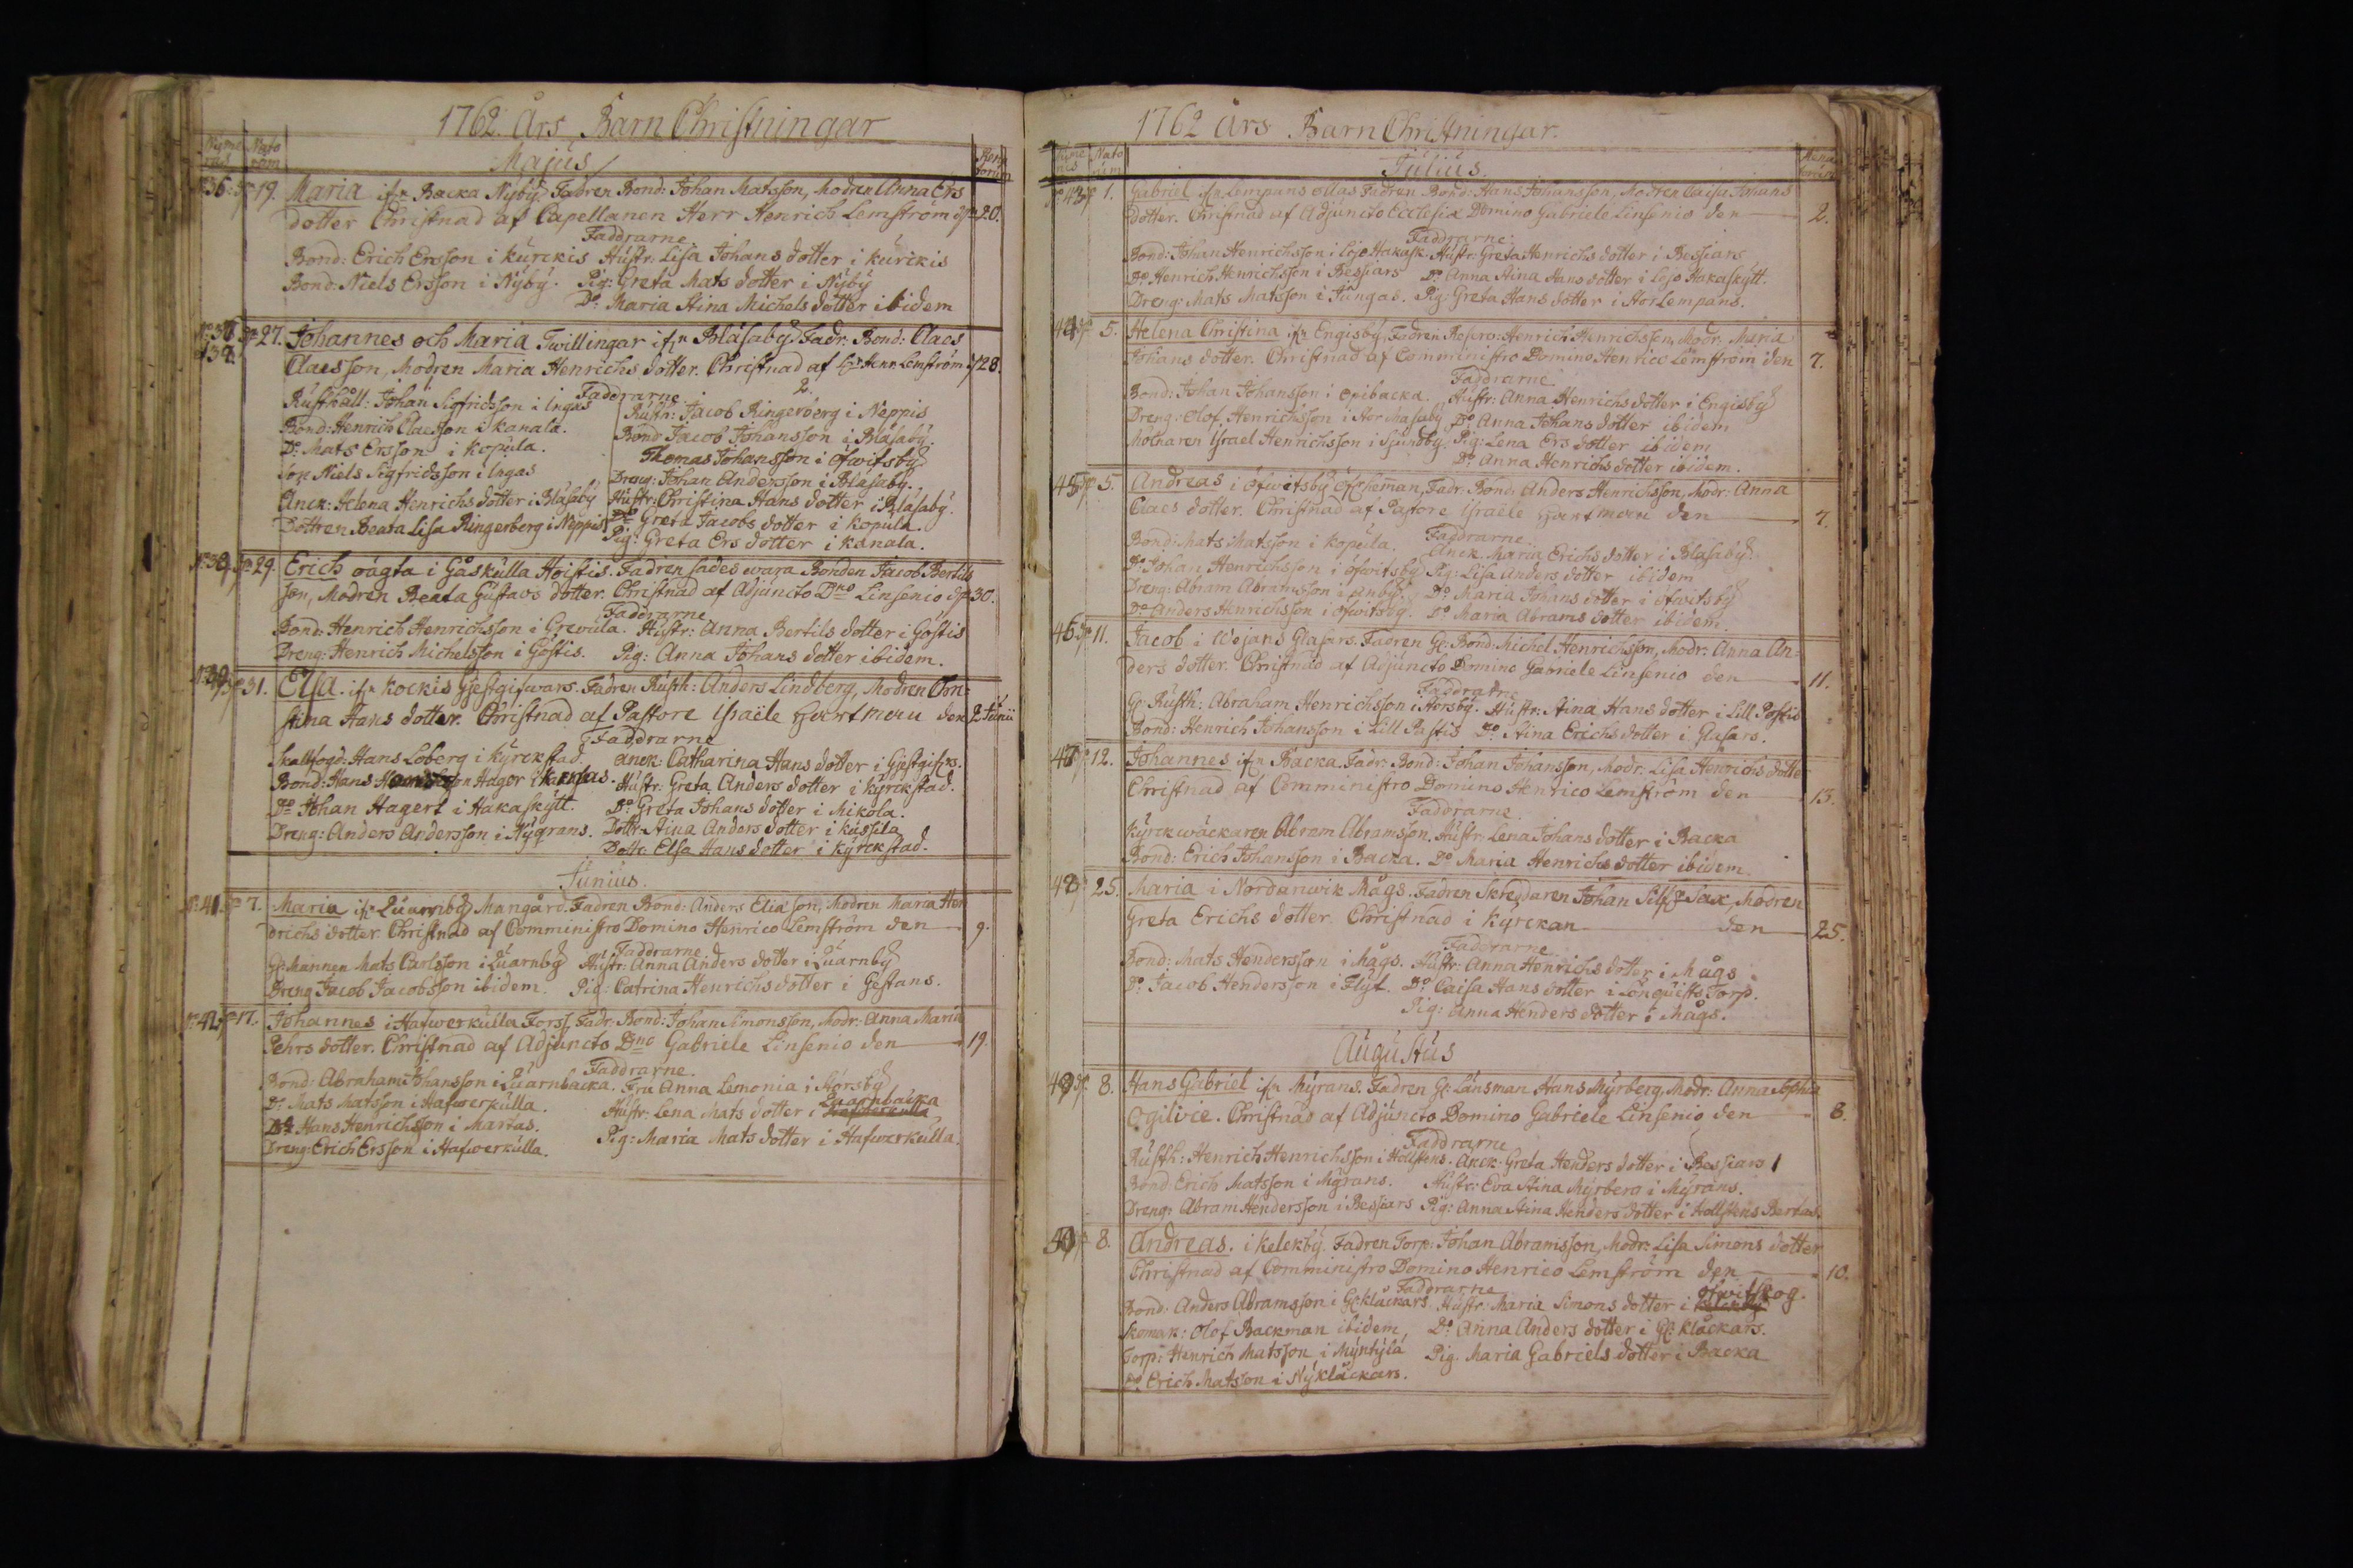 1762. Års Barn Christningar
Majus
19. Maria ifr Backa Nÿbÿ. Fadren Bond: Johan Matsson, Modren Anna Ers
dotter Christnad af Capellanen Herr Henrich Lemström 20.
Faddrarne
Bond: Erich Ersson i Kurckis Hustr: Lisa Johans dotter i Kurckis
Bond: Niels Ersson i Nÿbÿ. Pig: Greta Mats dotter i Nÿbÿ
Do Maria Stina Michels dotter ibidem
27. Johannes och Maria Twillingar ifr Blåsabÿ Fadr: Bond: Claes
Claesson, Modren Maria Henrichs dotter. Christnad af Hr Henr. Lemström 28.
Faddrarne 2.
Rusthåll: Johan Sigfridsson i Ingas Rusth: Jacob Ringerberg i Neppis
Bond: Henrich Claesson i Kanala. Bond Jacob Johansson i Blåsabÿ.
Do Mats Ersson i Kopula. Thomas Johansson i Ofwitsbÿ
Son Niels Sigfridsson i Ingas Dreng: Johan Andersson i Blåsabÿ.
Anck: Helena Henrichs dotter i Blåsabÿ Hustr: Christina Hans dotter i Blåsabÿ.
Dottren Beata Lisa Ringerberg i Neppis Do Greta Jacobs dotter i Kopula.
Pig: Greta Ers dotter i Kanala.
29. Erich oägta i Gåskulla Höistis. Fadren sades wara Bonden Jacob Bertils
son, Modren Beata Gustavs dotter. Christnad af Adjuncto Dno Linsenio 30.
Faddrarne
Bond: Henrich Henrichsson i Grevula. Hustr: Anna Bertils dotter i Göstis
Dreng: Henrich Michelsson i Göstis. Pig: Anna Johans dotter ibidem.
31. Elsa. ifr Kockis Gjestgifwars. Fadren Rusth: Anders Lindberg, Modren Chri-
stina Hans dotter. Christnad af Pastore Israële Hartman den 2 Junii
Faddrarne
Skallfogd: Hans Loberg i Kÿrckstad. Anck: Catharina Hans dotter i Gjestgifrs.
Bond: Hans Hager i Karsas. Hustr: Greta Anders dotter i Kÿrckstad.
Do Johan Hagert i Hakaskÿtt. Do Greta Johans dotter i Mikola.
Dreng: Anders Andersson i Nÿgrans. Dottr: Stina Anders dotter i Kussila
Dottr: Elsa Hans dotter i Kÿrckstad.
Junius.
No 41. 7. Maria ifr Quarnbÿ Mangård. Fadren Bond: Anders Eliasson, Modren Maria Hen
drichs dotter. Christnad af Comministro Domino Henrico Lemström den 9.
Faddrarne
Gl: Mannen Mats Carlsson i Quarnbÿ Hustr: Anna Anders dotter i Quarnbÿ
Dreng Jacob Jacobsson ibidem. Pig: Catrina Henrichs dotter i Gestans.
No 42. 17. Johannes i Hafwerkulla Forss, Fadr: Bond: Johan Simonsson, Modr: Anna Maria
Pehrs dotter. Christnad af Adjuncto Dno Gabriele Linsenio den 19.
Faddrarne.
Bond: Abraham Johansson i Quarnbacka. Fru Anna Lemonia i Storsbÿ
Do Mats Matsson i Hafwerkulla. Hustr: Lena Mats dotter i Quarnbacka
Do Hans Henrichsson i Martas. Pig: Maria Mats dotter i Hafwerkulla.
Dreng: Erich Ersson i Hafwerkulla.
1762 Års Barn Christningar.
Julius.
43. 1. Gabriel ifr Lempans ollas Fadren Bond: Hans Johansson, Modren Caisa Johans
dotter. Christnad af Adjuncto Ecclesiæ Domino Gabriele Linsenio den 2.
Faddrarne.
Bond: Johan Henrichsson i Lojo Hakask. Hustr: Greta Henrichs dotter i Bessiars
Do Henrich Henrichsson i Bessiars Do Anna Stina Hans dotter i Lojo Hakaskÿtt.
Dreng: Mats Matsson i Jungas. Pig: Greta Hans dotter i Stor Lempans.
44. 5. Helena Christina ifr Engisbÿ, Fadren Henrich Henrichsson, Modr. Maria
Johans dotter. Christnad af Comministro Domino Henrico Lemström den 7.
Faddrarne
Bond: Johan Johansson i Opibacka. Hustr: Anna Henrichs dotter i Engisbÿ
Dreng: Olof Henrichsson i Stor Masabÿ Do Anna Johans dotter ibidem
Molnaren Israel Henrichsson i Sjundbÿ. Pig: Lena Ers dotter ibidem
Do Anna Henrichs dotter ibidem.
45. 5. Andreas i Ofwitsbÿ, Fadr: Bond: Anders Henrichsson, Modr: Anna
Claes dotter. Christnad af Pastore Israële Hartman den 7.
Faddrarne
Bond: Mats Matsson i Kopula. Anck. Maria Erichs dotter i Blåsabÿ.
Do Johan Henrichsson i Ofwitsbÿ Pig: Lisa Anders dotter ibidem
Dreng: Abram Abramsson i Do Maria Johans dotter i Ofwitsbÿ
Do Anders Henrichsson i Ofwitsbÿ. Do Maria Abrams dotter ibidem.
46. 11. Jacob i Wejans Glasars. Fadren Gl: Bond: Michel Henrichsson, Modr: Anna An-
ders dotter. Christnad af Adjuncto Domino Gabriele Linsenio den 11.
Faddrarne
Gl: Rusth: Abraham Henrichsson i Storsbÿ. Hustr: Stina Hans dotter i Lill Pastis
Bond: Henrich Johansson i Lill Pastis Do Stina Erichs dotter i Glasars.
47. 12. Johannes ifr Backa. Fadr: Bond: Johan Johansson, Modr: Lisa Henrichs dotter
Christnad af Comministro Domino Henrico Lemström den 13.
Faddrarne.
Kÿrckwäckaren Abram Abramsson. Hustr: Lena Johans dotter i Backa
Bond: Erich Johansson i Backa. Do Maria Henrichs dotter ibidem
48. 25. Maria i Nordanwik Mågs. Fadren Skreddaren Johan Silf Sax, Modren
Greta Erichs dotter. Christnad i Kÿrckan den 25.
Faddrarne
Bond: Mats Hendersson i Mågs. Hustr: Anna Henrichs dotter i Mågs
Do Jacob Hendersson i Flÿt. Do Caisa Hans dotter i Lönquists Torp.
Pig: Anna Henders dotter i Mågs.
Augustus
49. 8. Hans Gabriel ifr Mÿrans. Fadren Gl: Länsman Hans Mÿrberg, Modr: Anna Sophia
Ogilvie. Christnad af Adjuncto Domino Gabriele Linsenio den 8.
Faddrarne
Rusth: Henrich Henrichsson i Hollstens. Anck: Greta Henders dotter i Bessiars
Bond Erich Matsson i Mÿrans. Hustr: Eva Stina Mÿrberg i Mÿrans.
Dreng: Abram Hendersson i Bessiars Pig: Anna Stina Henders dotter i Hollstens Bertas.
50. 8. Andreas. i Kelekbÿ. Fadren Torp: Johan Abramsson, Modr: Lisa Simons dotter
Christnad af Comministro Domino Henrico Lemström den 10.
Faddrarne
Bond: Anders Abramsson i Gl: klåckars Hustr: Maria Simons dotter i Ofwitskog.
Skomak: Olof Backman ibidem Do Anna Anders dotter i Gl: klåckars.
Torp: Henrich Matsson i Mÿntÿlä Pig. Maria Gabriels dotter i Backa
Do Erich Matsson i Nÿklåckars.